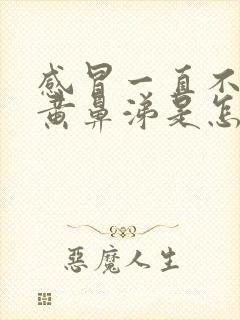 感冒一直不
黄鼻涕是怎
恶魔人生